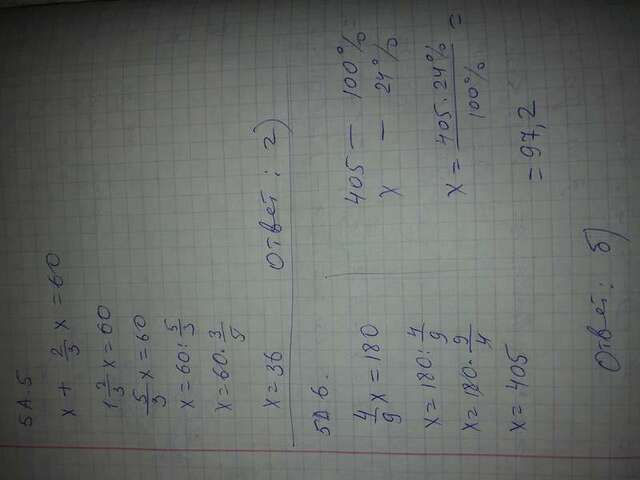 5А.5
x + 2/3 x = 60
1 2/3 x = 60
5/3 x = 60
x = 60 : 5/3
x = 60 · 3/5
x = 36 Ответ : г)
5А 6.
4/9 x = 180
x = 180 : 4/9
x = 180 · 9/4
x = 405
405 — 100%
x — 24%
x = 405 · 24% / 100% =
= 97,2
Ответ : б)